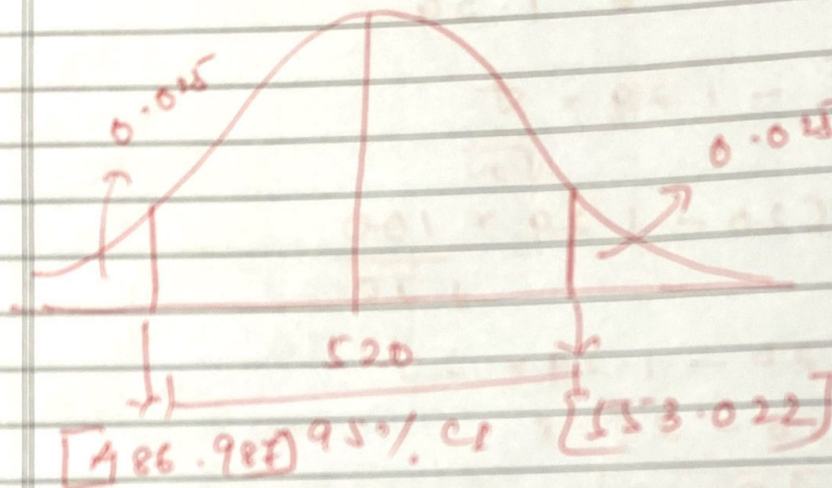 0.025
0.025
520
[486.987] 95% CI [553.022]